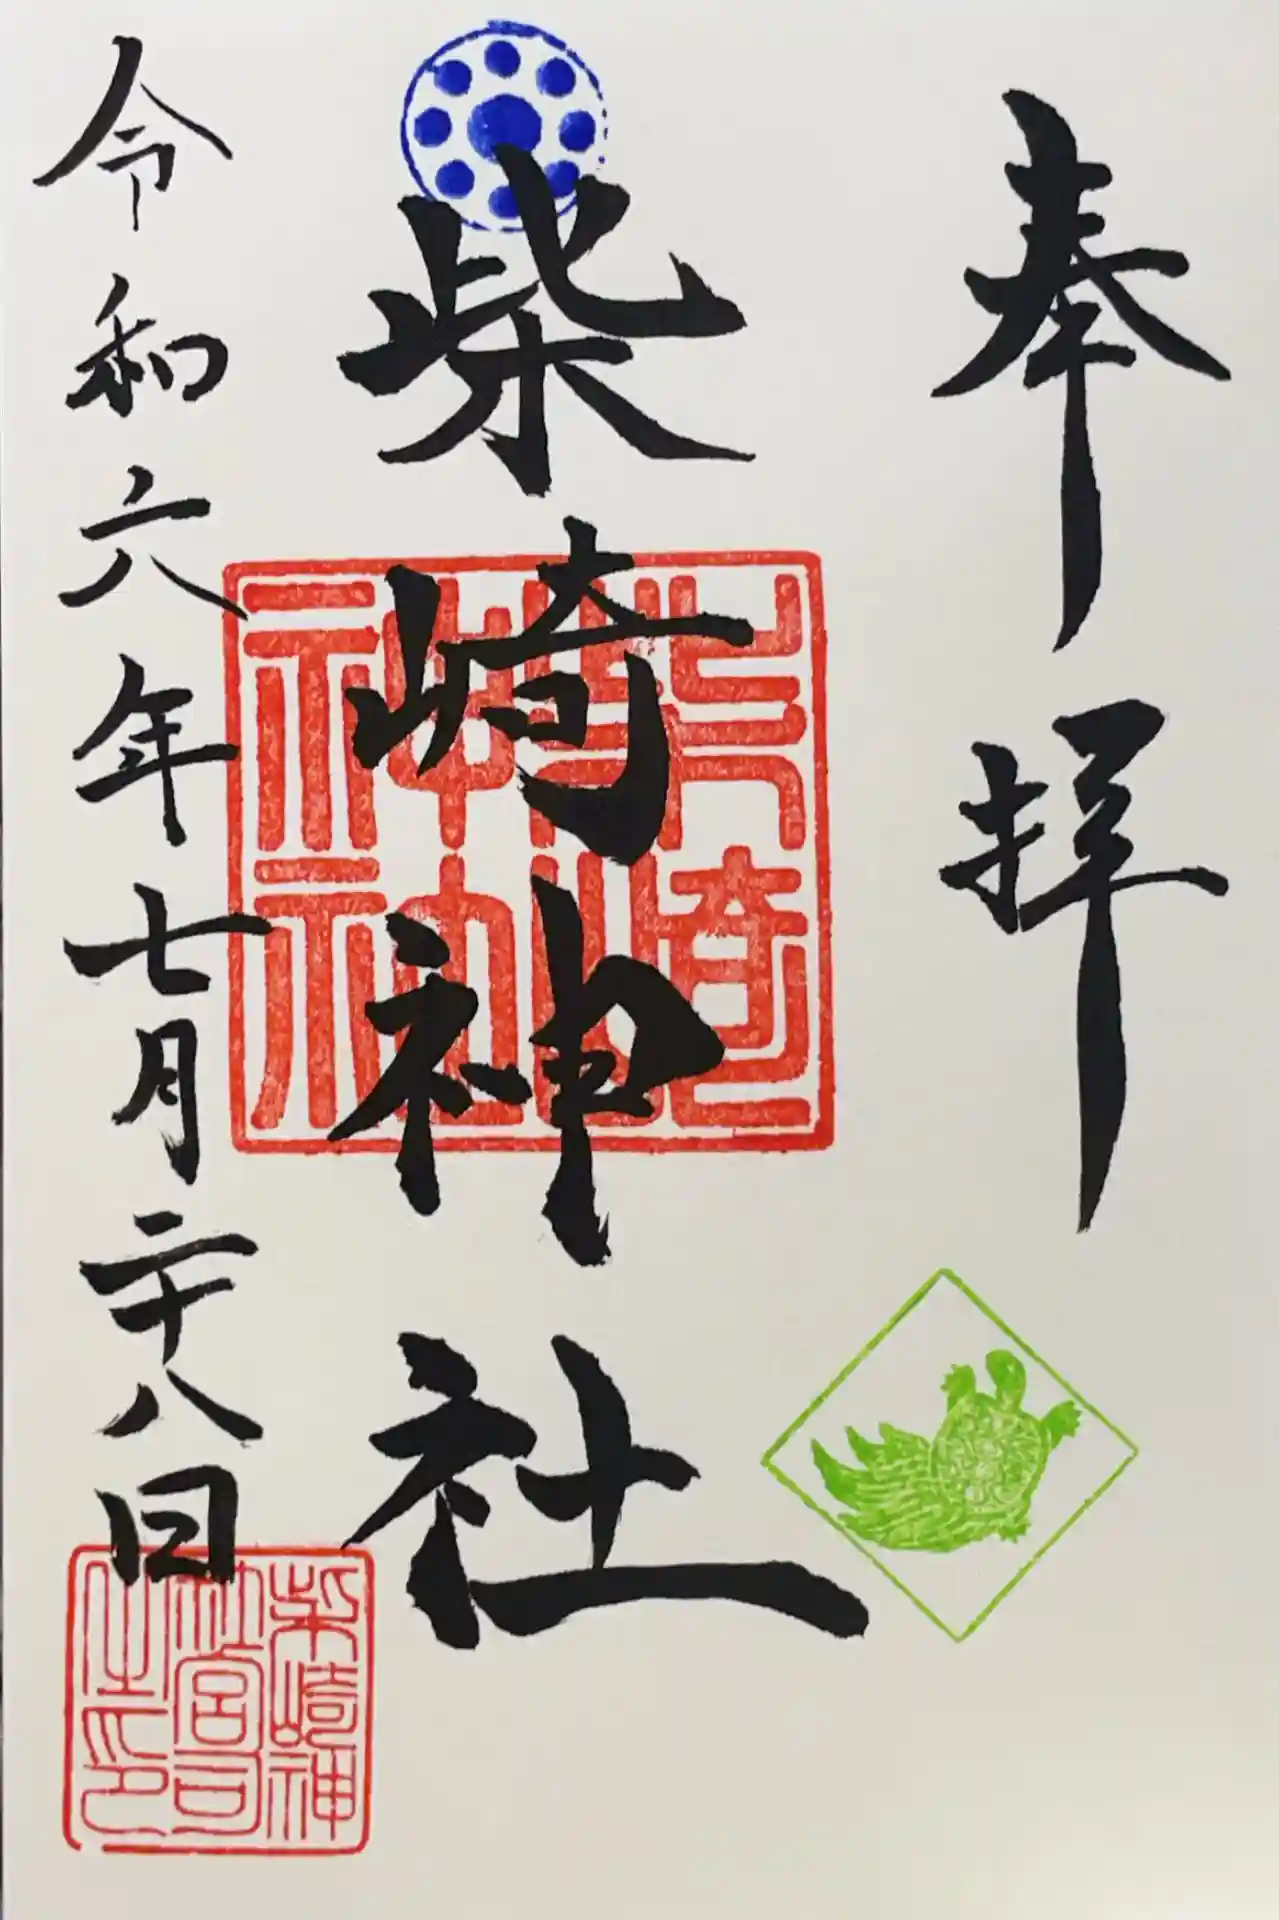 奉拝
柴崎神社
柴崎神社
令和六年七月二十八日
柴崎神社宮司之印